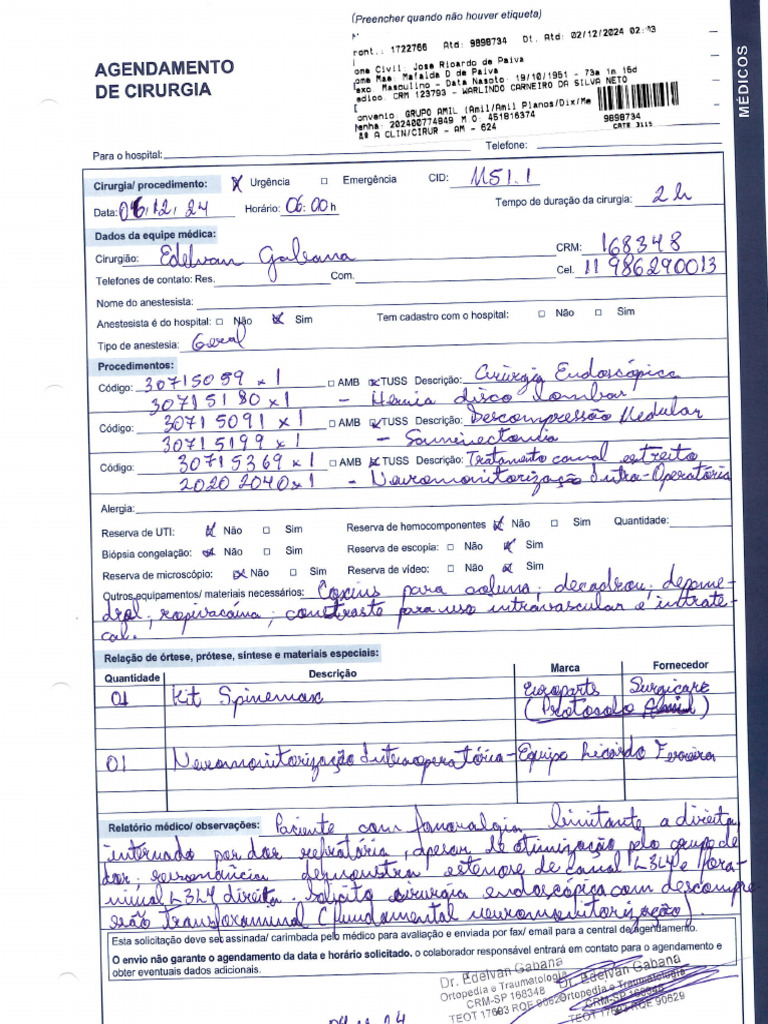 (Preencher quando não houver etiqueta)
ront.: 1722766 Atd: 9898734 Dt. Atd: 02/12/2024 02:
AGENDAMENTO
DE CIRURGIA
ome Civil: Jose Ricardo de Paiva
ome Mae: Mafalda D de Paiva
exo: Masculino - Data Nascto: 19/10/1951 - 73a 1m 15d
edico: CRM 123793 - WARLINDO CARNEIRO DA SILVA NETO
onvenio: GRUPO AMIL (Amil/Amil Planos/Dix/Me
enha: 202400774849 M O: 451816374
A CLIN/CIRUR - AM - 624
9898734
MÉDICOS
Para o hospital: Telefone:
Cirurgia/ procedimento: X Urgência □ Emergência CID: M51.1
Data: 06.12.24 Horário: 06:00 h Tempo de duração da cirurgia: 2h
Dados da equipe médica:
Cirurgião: Edelvan Gabana CRM: 168348
Telefones de contato: Res. Com. Cel. 11 986290013
Nome do anestesista:
Anestesista é do hospital: □ Não X Sim Tem cadastro com o hospital: □ Não □ Sim
Tipo de anestesia: Geral
Procedimentos:
Código: 30715059 x 1 □ AMB X TUSS Descrição: Cirurgia Endoscópica
30715180 x 1 - Hernia disco lombar
Código: 30715091 x 1 □ AMB X TUSS Descrição: Descompressão Medular
30715199 x 1 - Laminectomia
Código: 30715369 x 1 □ AMB X TUSS Descrição: Tratamento canal estreito
2020 2040 x 1 - Neuromonitorização Intra-Operatória
Alergia:
Reserva de UTI: X Não □ Sim Reserva de homocomponentes X Não □ Sim Quantidade:
Biópsia congelação: X Não □ Sim Reserva de escopia: □ Não X Sim
Reserva de microscópio: X Não □ Sim Reserva de vídeo: □ Não X Sim
Outros equipamentos/ materiais necessários: Coxins para coluna; decadron; depome-
drol; ropivacaína; contraste para uso intravascular e intrate-
cal.
Relação de órtese, prótese, síntese e materiais especiais:
Quantidade Descrição Marca Fornecedor
01 Kit Spinemax Europarts Surgicare
(Protocolo Amil)
01 Neuromonitorização Intraoperatória - Equipe Ricardo Ferreira
Relatório médico/ observações: Paciente com limitante a direita
internado por dor refratária, apesar de otimização pelo grupo de
dor. ressonância demonstra estenose de canal L3L4 e fora-
minal L3L4 direita. Solicito cirurgia endoscópica com descompre
ssão transforaminal (fundamental neuromonitorização).
Esta solicitação deve ser assinada/ carimbada pelo médico para avaliação e enviada por fax/ email para a central de agendamento.
O envio não garante o agendamento da data e horário solicitado. o colaborador responsável entrará em contato para o agendamento e
obter eventuais dados adicionais.
Dr. Edelvan Gabana
Ortopedia e Traumatologia
CRM-SP 168348
TEOT 17603 RQE 90629
Dr. Edelvan Gabana
Ortopedia e Traumatologia
CRM-SP 168348
TEOT 17603 RQE 90629